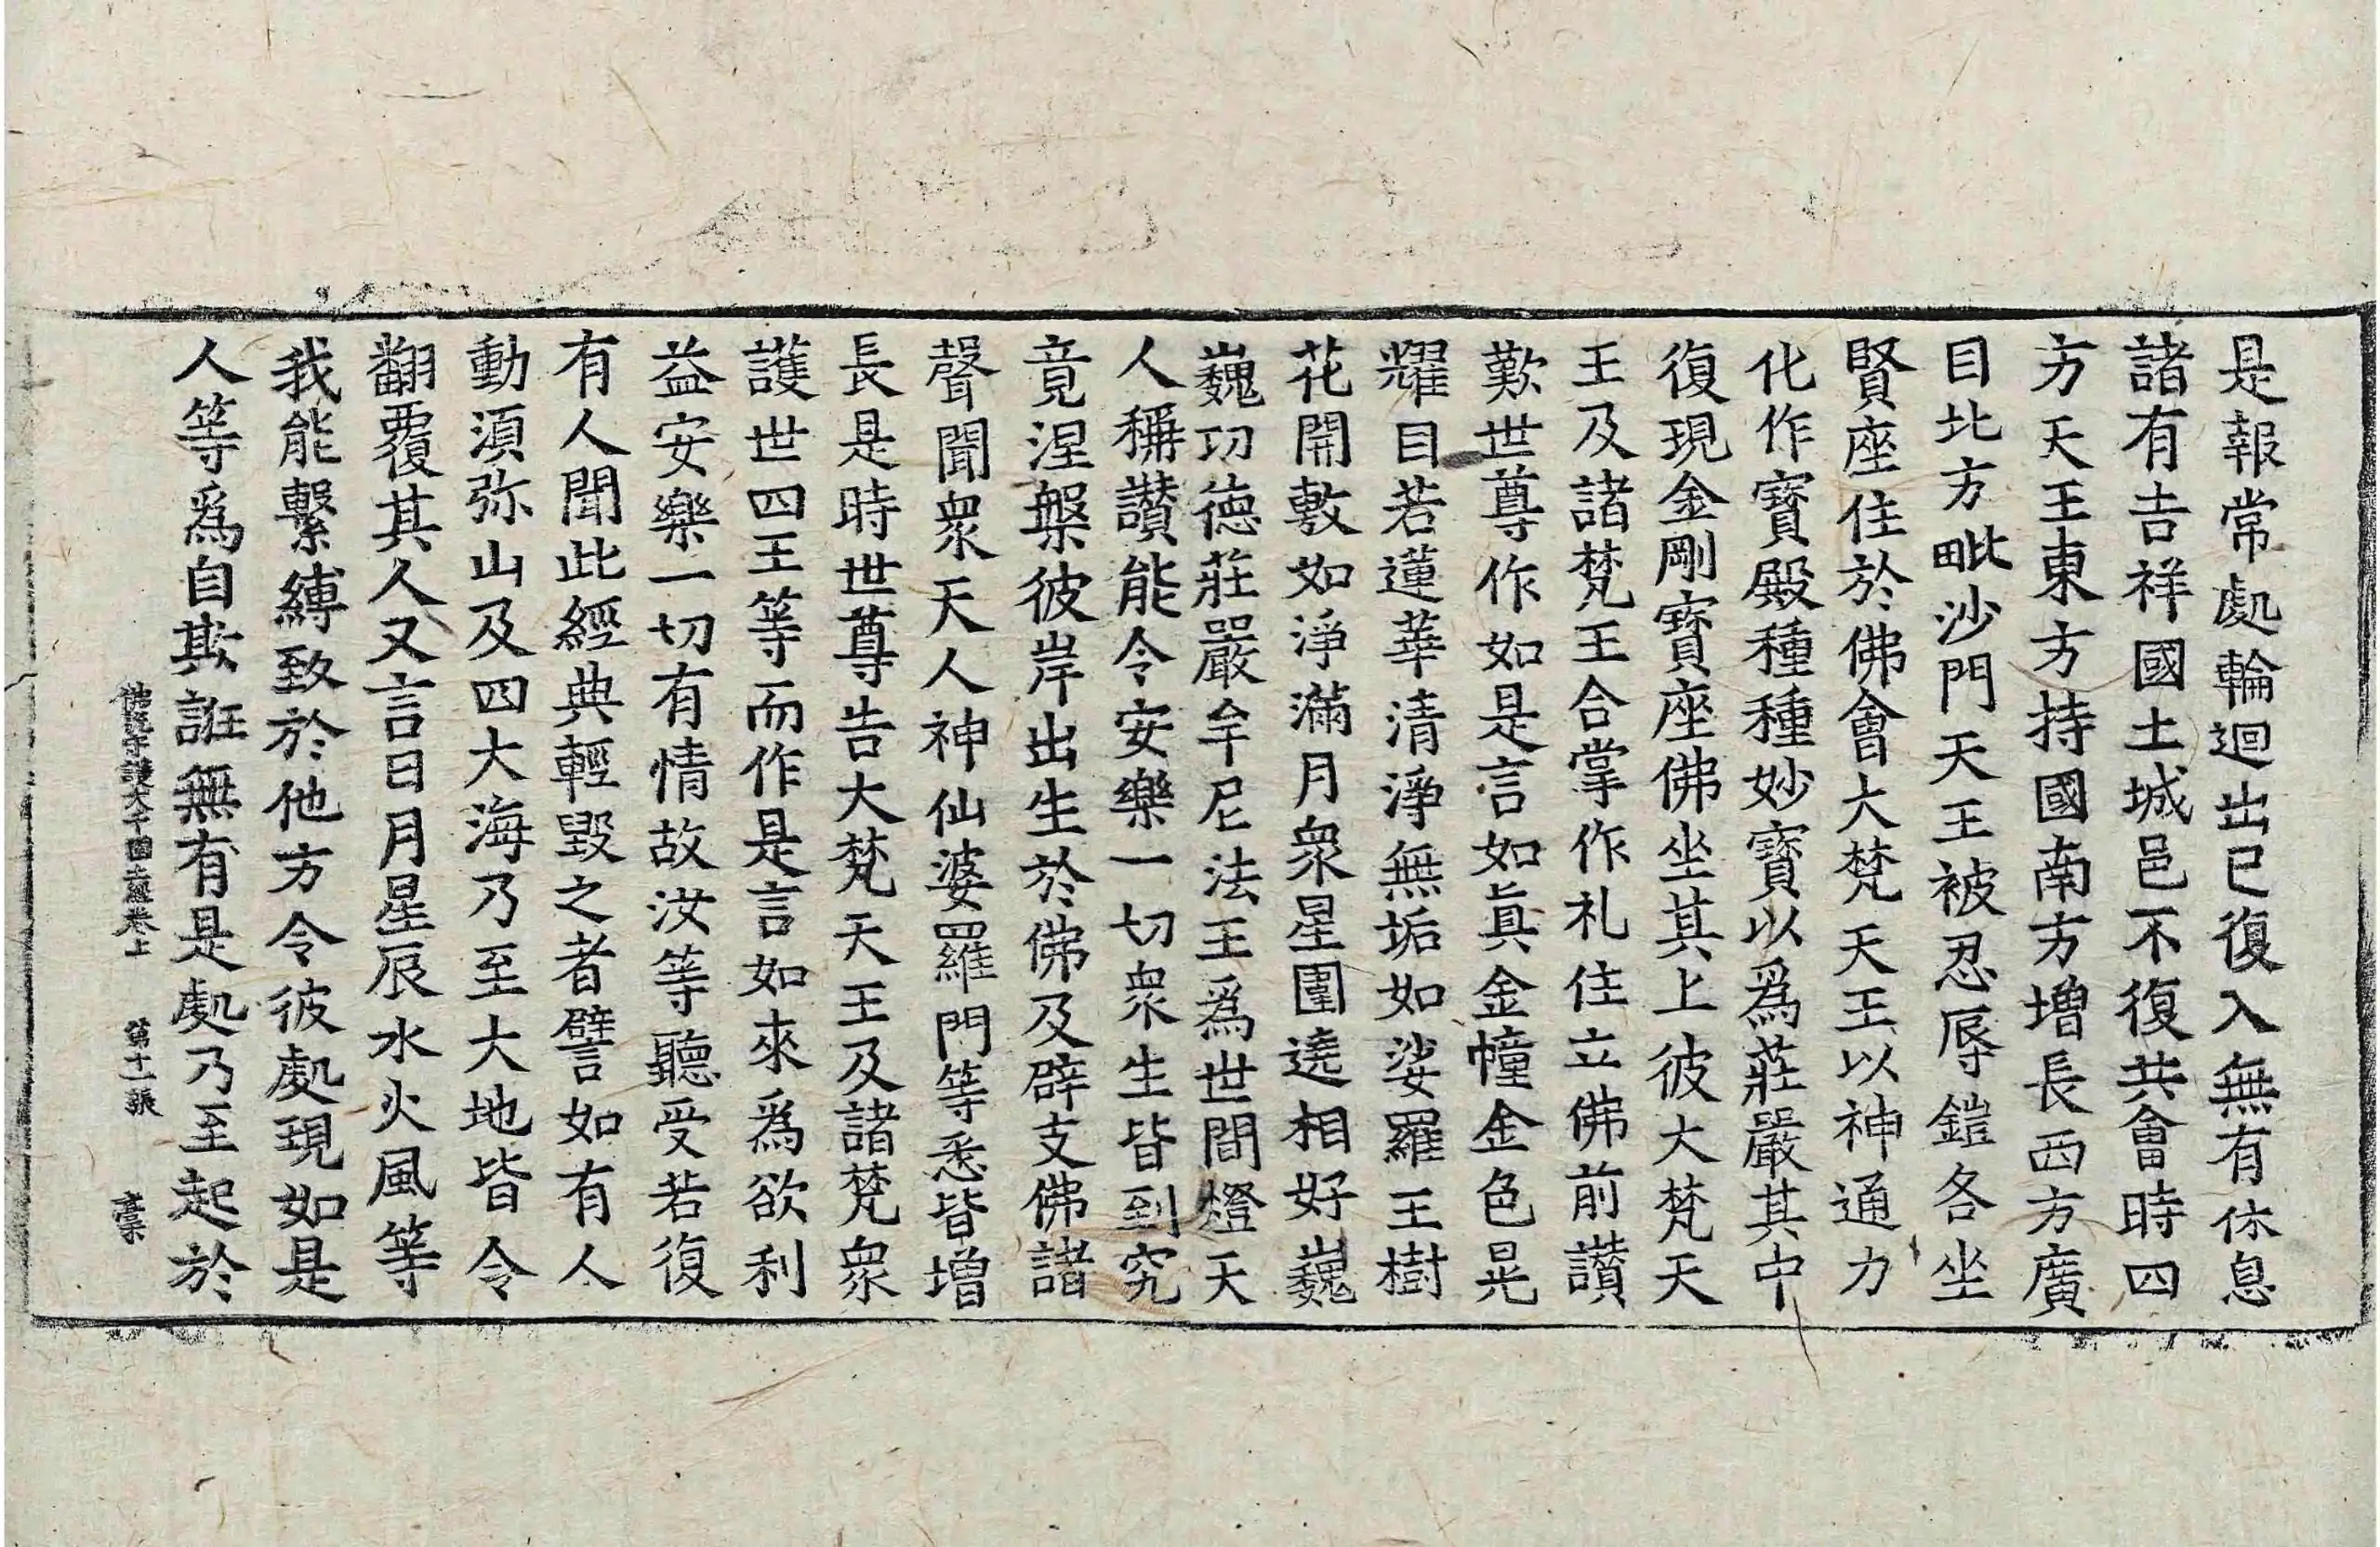 是報常處輪迴出已復入無有休息
諸有吉祥國土城邑不復共會時四
方天王東方持國南方增長西方廣
目北方毗沙門天王被忍辱鎧各坐
賢座住於佛會大梵天王以神通力
化作寶殿種種妙寶以爲莊嚴其中
復現金剛寶座佛坐其上彼大梵天
王及諸梵王合掌作礼住立佛前讃
歎世尊作如是言如眞金幢金色晃
耀目若蓮華清淨無垢如娑羅王樹
花開敷如淨滿月衆星圍遶相好巍
巍功德莊嚴牟尼法王爲世間燈天
人稱讃能令安樂一切衆生皆到究
竟涅槃彼岸出生於佛及辟支佛諸
聲聞衆天人神仙婆羅門等悉皆增
長是時世尊告大梵天王及諸梵衆
護世四王等而作是言如來爲欲利
益安樂一切有情故汝等聽受若復
有人聞此經典輕毀之者譬如有人
動須弥山及四大海乃至大地皆令
翻覆其人又言日月星辰水火風等
我能繫縛致於他方令彼處現如是
人等爲自欺誑無有是處乃至起於
佛說守護大千國土經卷上 第十一張 槀